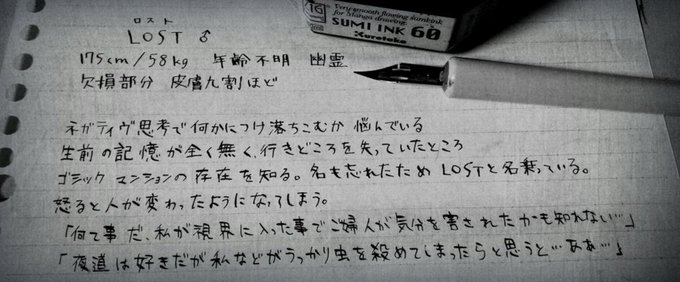 ロスト
LOST ♂
175cm/58kg 年齢不明 幽霊
欠損部分 皮膚九割ほど
ネガティヴ思考で何かにつけ落ちこむか 悩んでいる
生前の記憶が全く無く、行きどころを失っていたところ
ゴシックマンションの存在を知る。名も忘れたためLOSTと名乗っている。
怒ると人が変わったようになってしまう。
「何て事だ、私が視界に入った事でご婦人が気分を害されたかも知れない…」
「夜道は好きだが私などがうっかり虫を殺めてしまったらと思うと…ああ…」
Very smooth flowing sumi ink
for Manga drawing.
SUMI INK 60
Kuretake